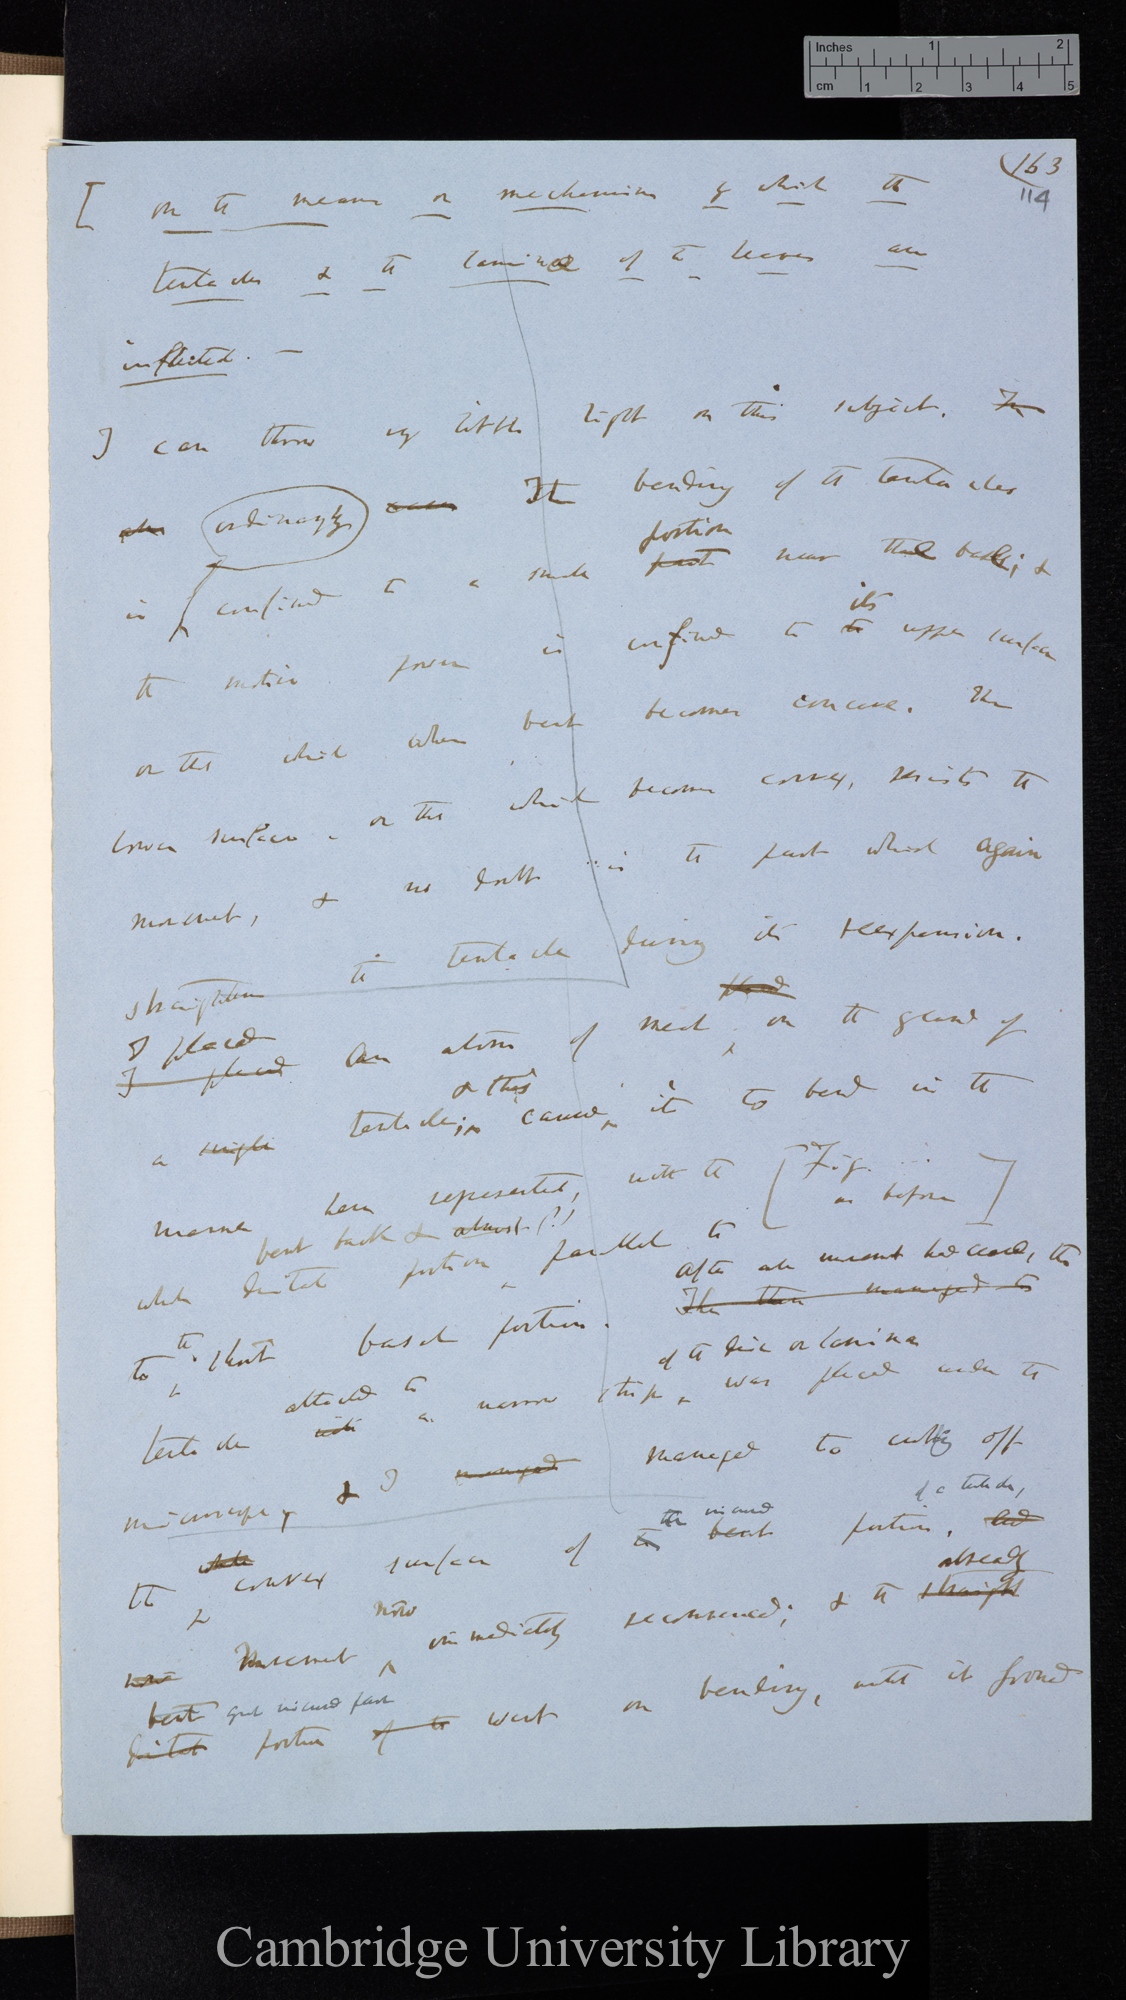 Inches 1 2
cm 1 2 3 4 5
163
114
[ On the means or mechanism by which the
tentacles & the laminæ of the leaves are
inflected. —
I can throw very little light on this subject. The
ordinarily The bending of the tentacles
portion
is confined to a small part near the base; &
its
the motive power is confined to the upper surface
or that which when bent becomes concave. The
lower surface or that which becomes convex, resists the
movement, & no doubt is the part which again
straightens the tentacle during its reexpansion.
placed
I placed
I placed an atom of meat on the gland of
& this
a single tentacle; caused it to bend in the
manner here represented, with the [Fig. ...
as before]
bent back & almost (?)
whole distal portion parallel to
After all movement had ceased, the
to the short basal portion. The then managed to
of the disc or lamina
attached to
tentacle with a narrow strip was placed under the
microscope, & I managed managed to cut off
of a tentacle,
the incurved
the convex surface of the bent portion,
already
now
movement immediately recommenced; & the straight
bent incurved part
distal portion of the went on bending, until it formed
Cambridge University Library